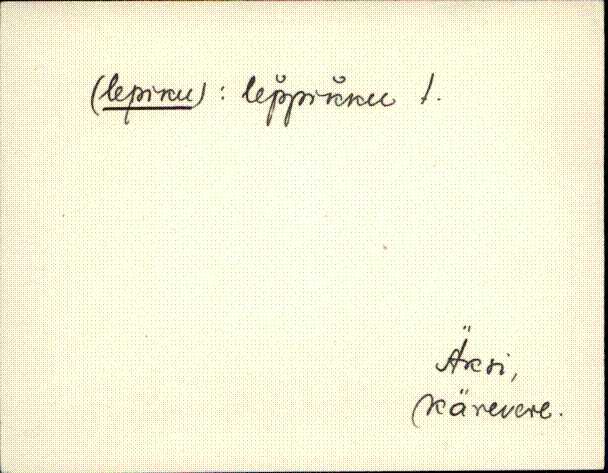 (lepiku) : lep̆pik̆ku t.
Äksi,
Kärevere.